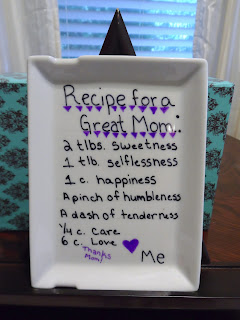 Recipe for a
Great Mom:
2 tlbs. sweetness
1 tlb. selflessness
1 c. happiness
A pinch of humbleness
A dash of tenderness
1/4 c. care
6 c. Love
Thanks
Mom!
Me